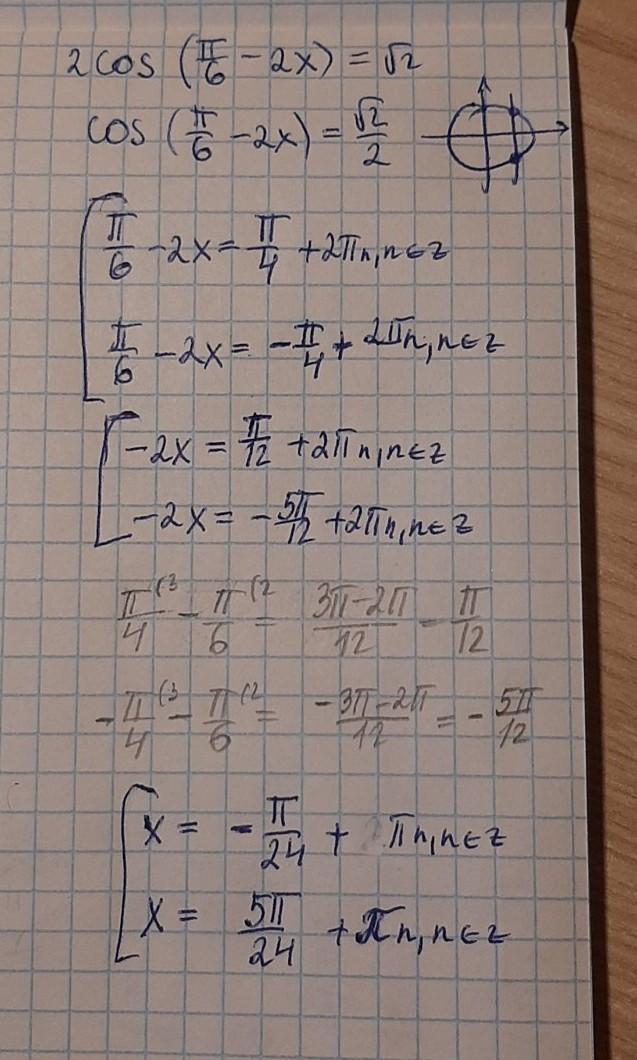 2cos (π/6 − 2x) = √2
cos (π/6 − 2x) = √2/2
π/6 − 2x = π/4 + 2πn, n ∈ z
π/6 − 2x = −π/4 + 2πn, n ∈ z
−2x = π/12 + 2πn, n ∈ z
−2x = −5π/12 + 2πn, n ∈ z
π/4 (3 − π/6 (2 = 3π−2π/12 − π/12
−π/4 (3 − π/6 (2 = −3π−2π/12 = −5π/12
x = −π/24 + πn, n ∈ z
x = 5π/24 + πn, n ∈ z